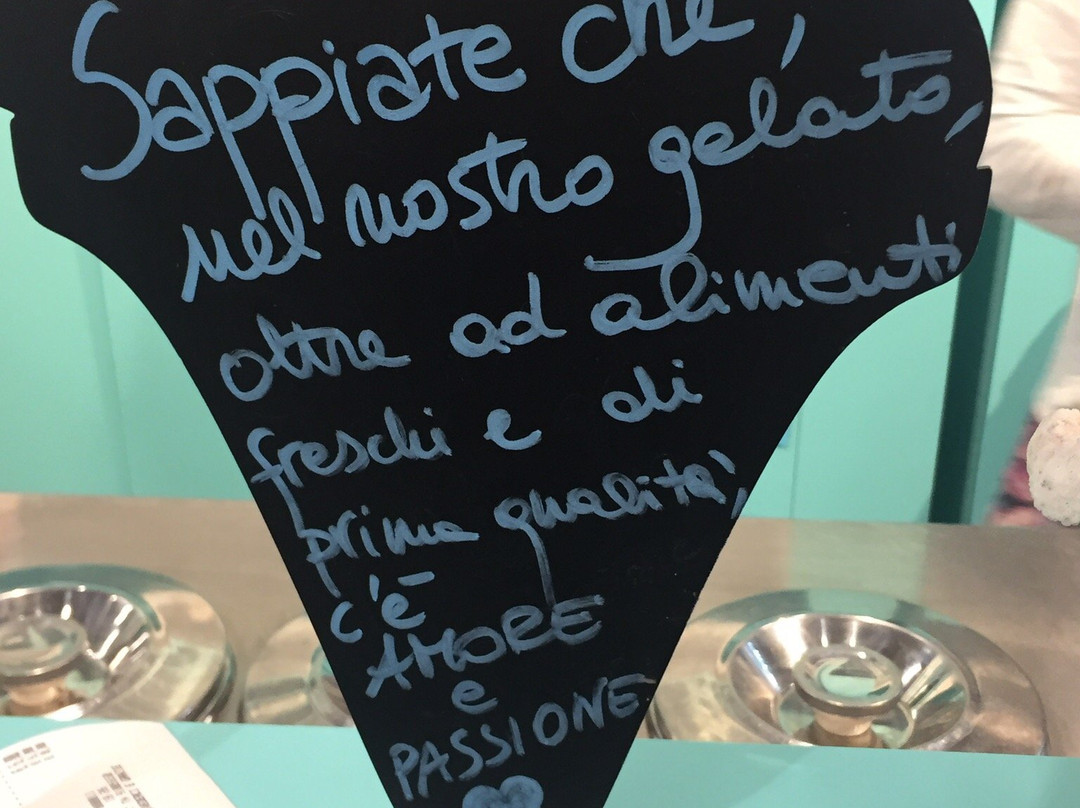 Sappiate che,
nel nostro gelato,
oltre ad alimenti
freschi e di
prima qualità,
c'è
AMORE
e
PASSIONE